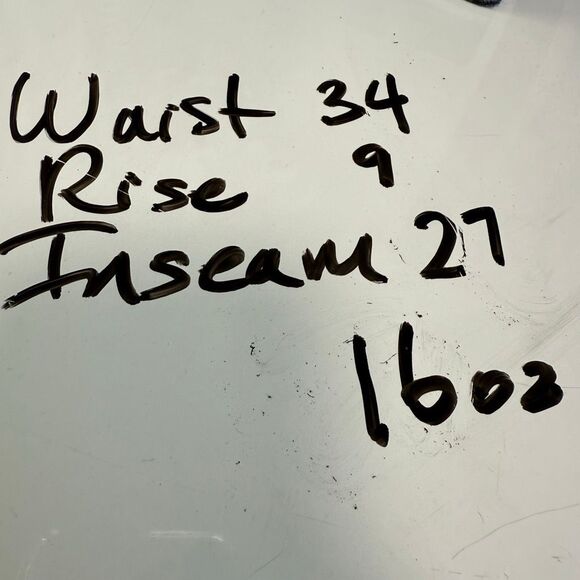 Waist 34
Rise 9
Inseam 27
16oz